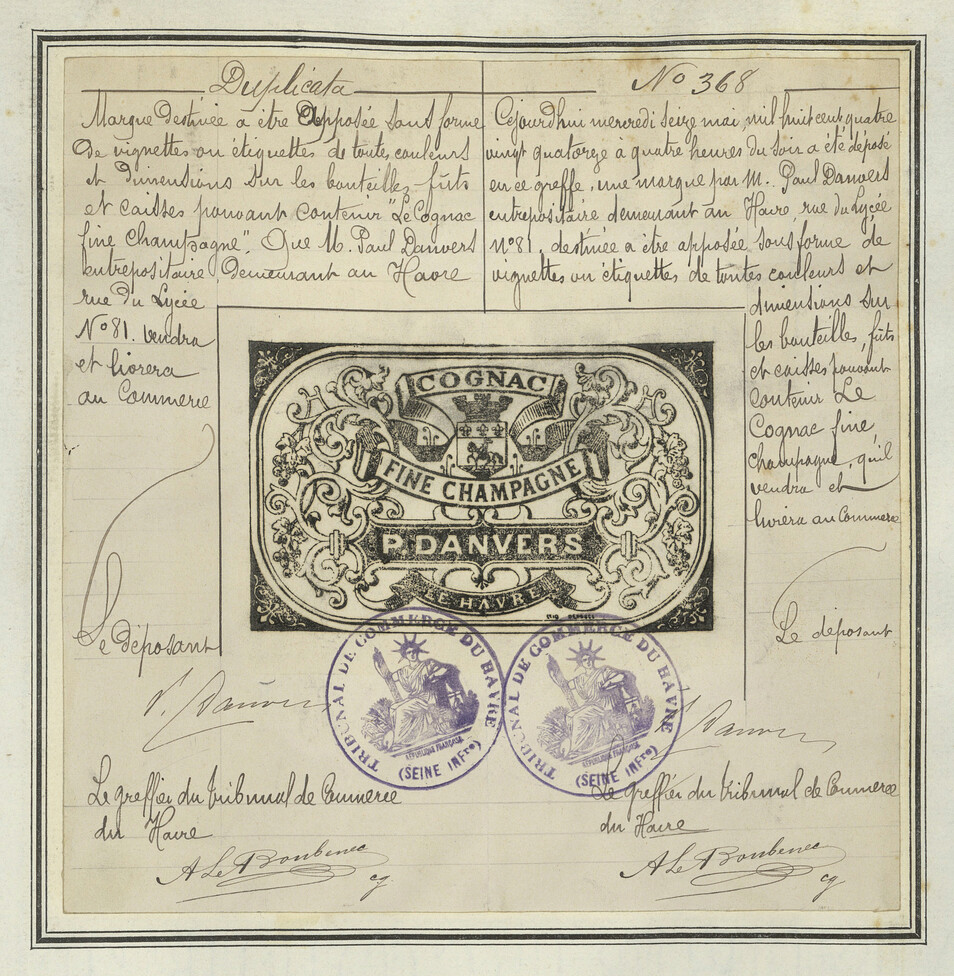 Duplicata
Marque destinée a être apposée sous forme
de vignettes ou étiquettes de toutes couleurs
et dimensions sur les bouteilles, fûts
et caisses pouvant contenir "Le Cognac
fine Champagne". Que M. Paul Danvers
entrepositaire demeurant au Havre
rue du Lycée
No 81. vendra
et livrera
au Commerce
Le déposant
P. Danvers
Le greffier du Tribunal de Commerce
du Havre
A Le Boubenec
cg
No 368
Cejourdhui mercredi seize mai, mil huit cent quatre
vingt quatorze a quatre heures du soir a été déposé
en ce greffe, une marque par M. Paul Danvers
entrepositaire demeurant au Havre, rue du Lycée
No 81. destinée a être apposée sous forme de
vignettes ou étiquettes de toutes couleurs et
dimensions sur
les bouteille, fûts
et caisses pouvant
contenir Le
Cognac fine
champagne, qu'il
vendra et
livrera au Commerce
Le déposant
Danvers
Le greffier du Tribunal de Commerce
du Havre
A Le Boubenec
cg
COGNAC
FINE CHAMPAGNE
P. DANVERS
LE HAVRE
TRIBUNAL DE COMMERCE DU HAVRE
RÉPUBLIQUE FRANÇAISE
(SEINE INFre)
TRIBUNAL DE COMMERCE DU HAVRE
RÉPUBLIQUE FRANÇAISE
(SEINE INFre)